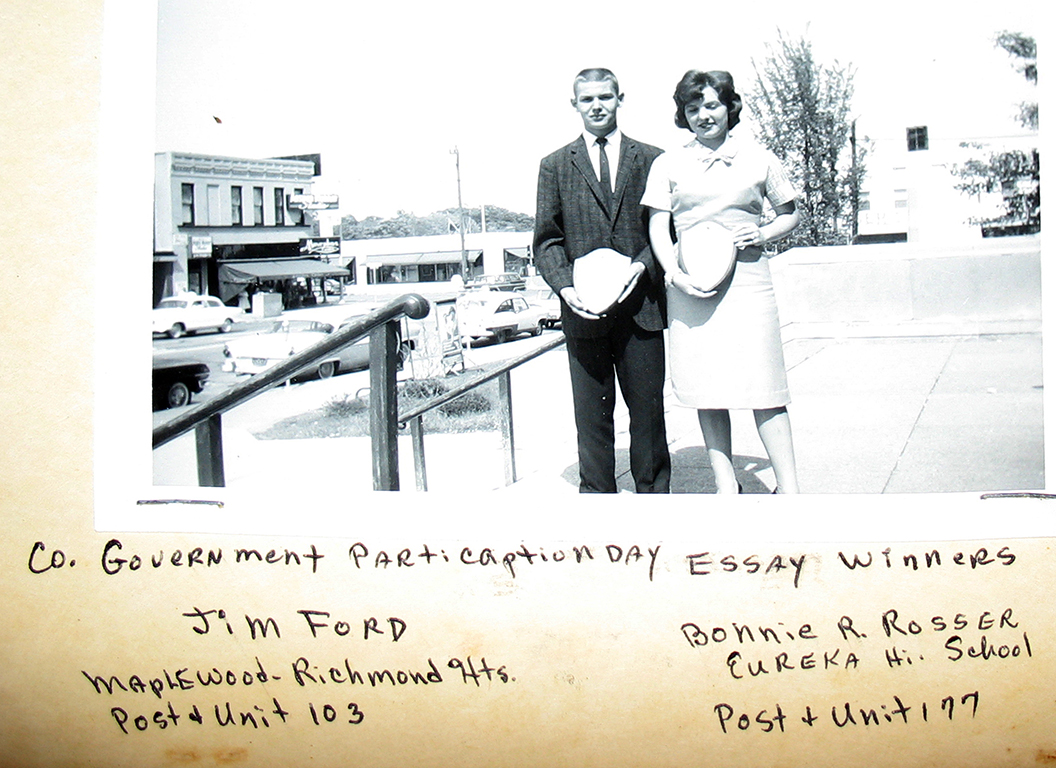 Co. Government Particaption Day Essay Winners
Jim Ford
Maplewood-Richmond Hts.
Post & Unit 103
Bonnie R. Rosser
Eureka Hi. School
Post & Unit 177